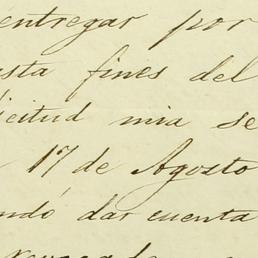 entregar por
sta fines del
icitud mia se
17 de Agosto
ndó dar cuenta